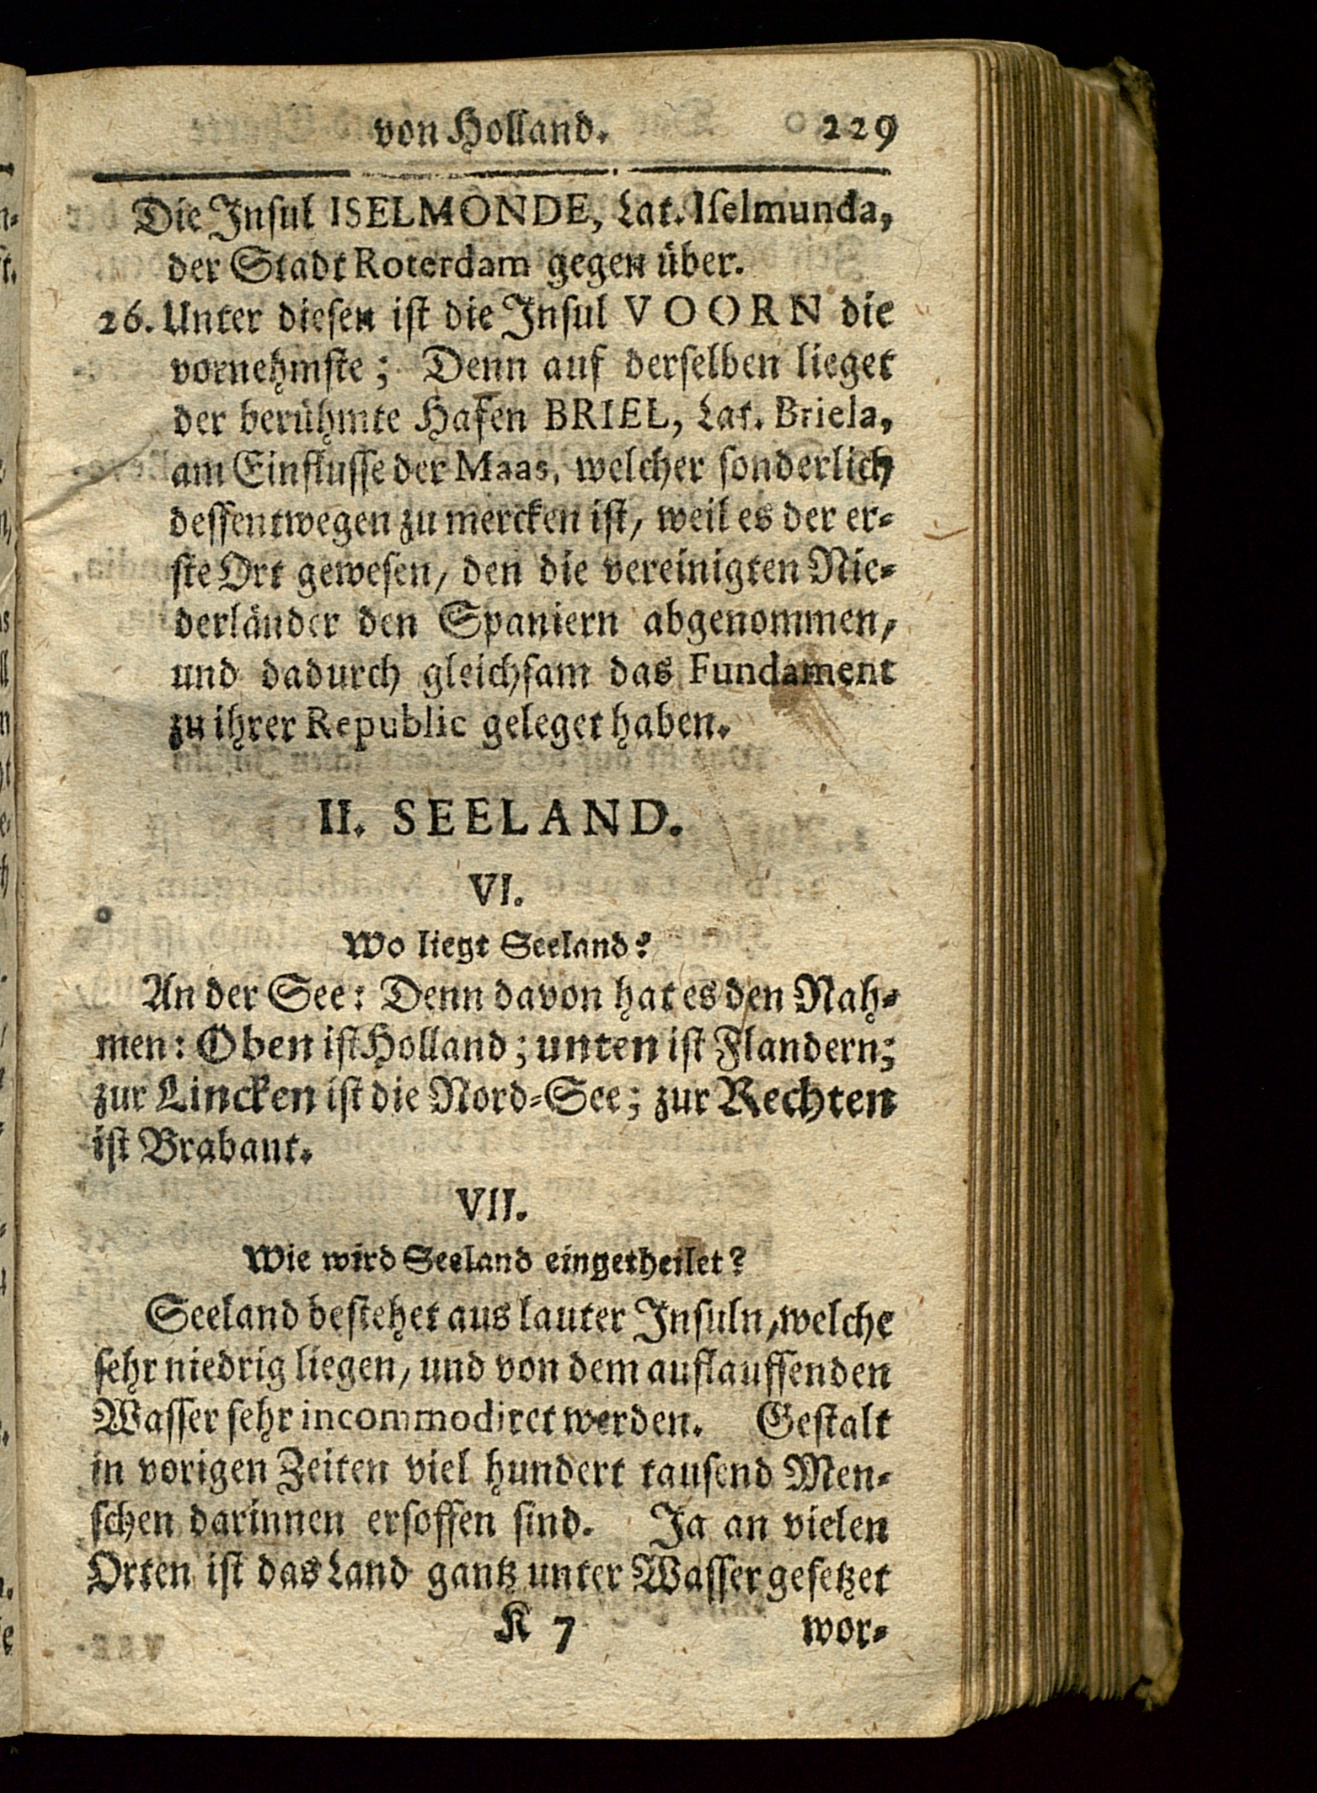 von Holland. 229
Die Insul ISELMONDE, Lat. Iselmunda,
der Stadt Roterdam gegen über.
26. Unter diesen ist die Insul VOORN die
vornehmste; Denn auf derselben lieget
der berühmte Hafen BRIEL, Lat. Briela,
am Einflusse der Maas, welcher sonderlich
dessentwegen zu mercken ist, weil es der er-
ste Ort gewesen, den die vereinigten Nie-
derländer den Spaniern abgenommen,
und dadurch gleichsam das Fundament
zu ihrer Republic geleget haben.
II. SEELAND.
VI.
Wo liegt Seeland?
An der See: Denn davon hat es den Nah-
men: Oben ist Holland; unten ist Flandern;
zur Lincken ist die Nord-See; zur Rechten
ist Brabant.
VII.
Wie wird Seeland eingetheilet?
Seeland bestehet aus lauter Insuln, welche
sehr niedrig liegen, und von dem auflauffenden
Wasser sehr incommodiret werden. Gestalt
in vorigen Zeiten viel hundert tausend Men-
schen darinnen ersoffen sind. Ja an vielen
Orten ist das Land gantz unter Wasser gesetzet
K 7 wor-